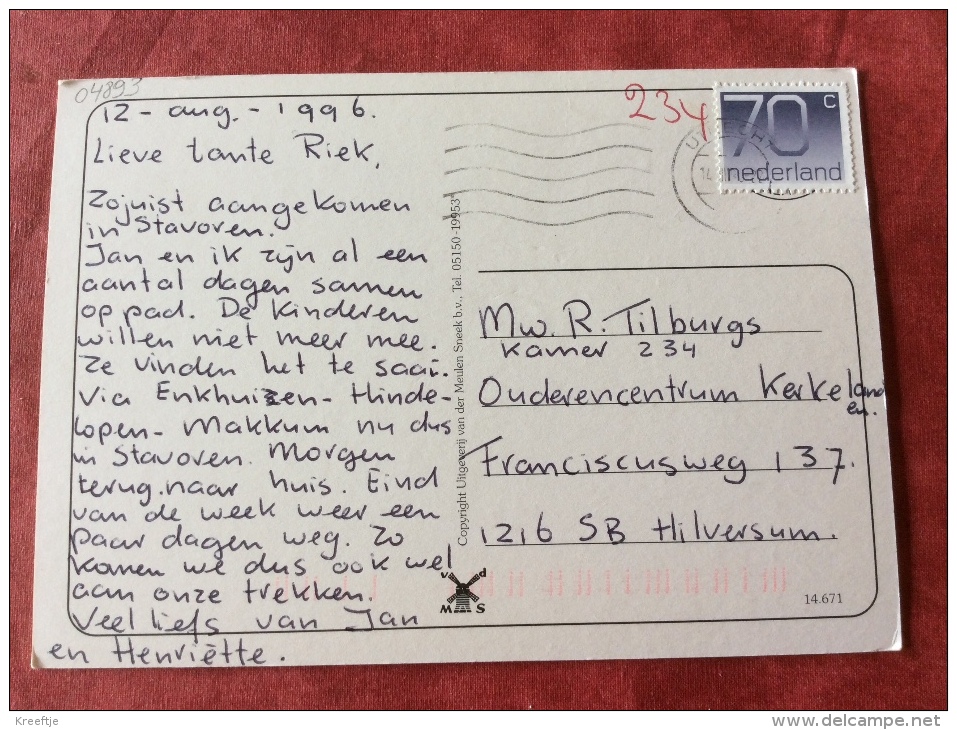 04893
12 - aug. - 1996.
Lieve tante Riek,
Zojuist aangekomen
in Stavoren.
Jan en ik zijn al een
aantal dagen samen
op pad. De kinderen
willen niet meer mee.
Ze vinden het te saai.
Via Enkhuizen - Hinde-
lopen - Makkum nu dus
in Stavoren. Morgen
terug naar huis. Eind
van de week weer een
paar dagen weg. Zo
komen we dus ook wel
aan onze trekken.
Veel liefs van Jan
en Henriëtte.
Copyright Uitgeverij van der Meulen Sneek b.v., Tel. 05150-19953*
v d
M S
234
UTRECHT
14
70 c
nederland
Mw. R. Tilburgs
Kamer 234
Ouderencentrum Kerkeland
en.
Franciscusweg 137.
1216 SB Hilversum.
14.671
Kreeftje
www.delcampe.net